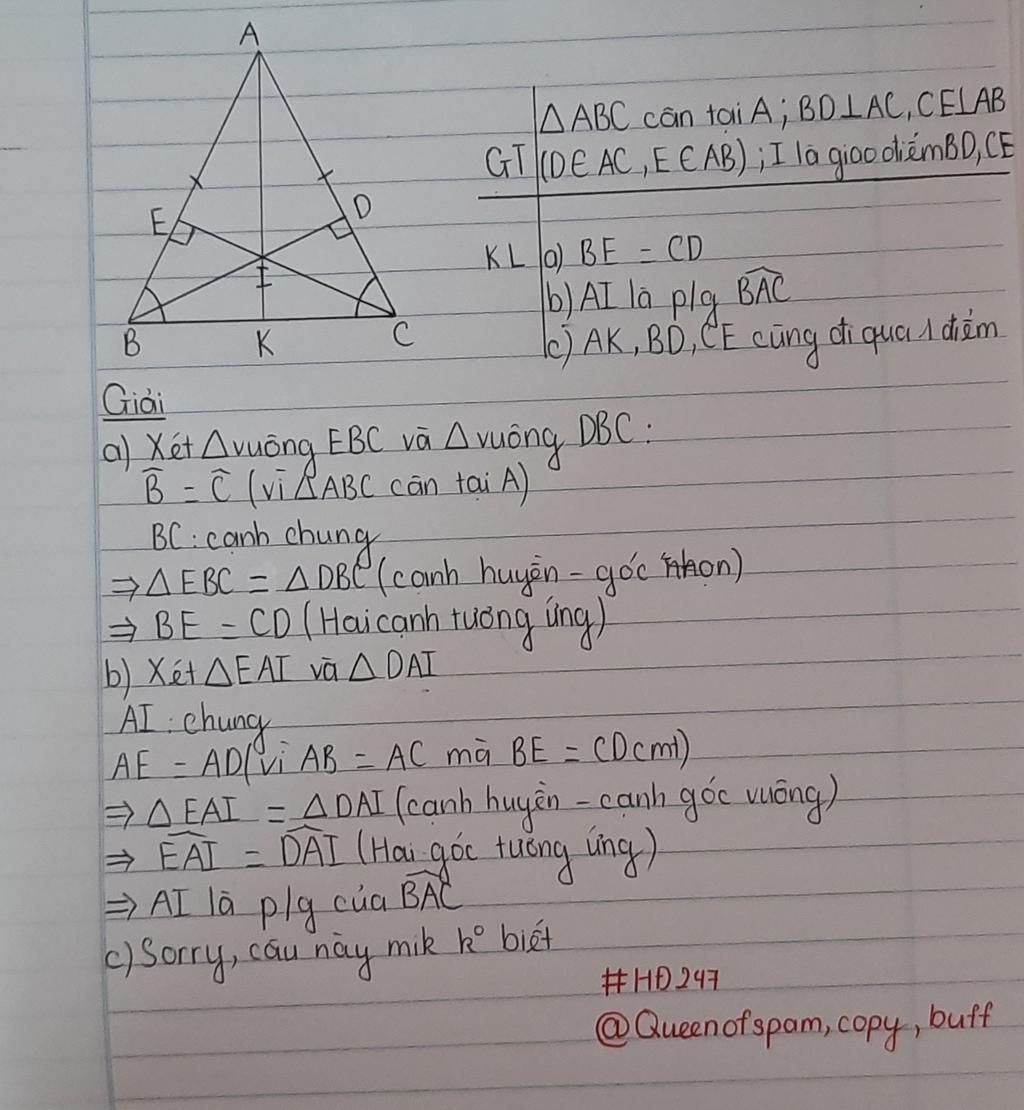 A
E
D
I
B
K
C
GT
△ABC cân tại A; BD⊥AC, CE⊥AB
(D∈AC, E∈AB); I là giao điểm BD, CE
KL
a) BE = CD
b) AI là p/g BAC
c) AK, BD, CE cùng đi qua 1 điểm
Giải
a) Xét △vuông EBC và △vuông DBC:
B̂ = Ĉ (vì △ABC cân tại A)
BC: cạnh chung
⇒ △EBC = △DBC (cạnh huyền - góc nhọn)
⇒ BE = CD (Hai cạnh tương ứng)
b) Xét △EAI và △DAI
AI: chung
AE = AD (vì AB = AC mà BE = CD cmt)
⇒ △EAI = △DAI (cạnh huyền - cạnh góc vuông)
⇒ EAI = DAI (Hai góc tương ứng)
⇒ AI là p/g của BAC
c) Sorry, câu này mik k° biết
#HĐ247
@Queenofspam, copy, buff